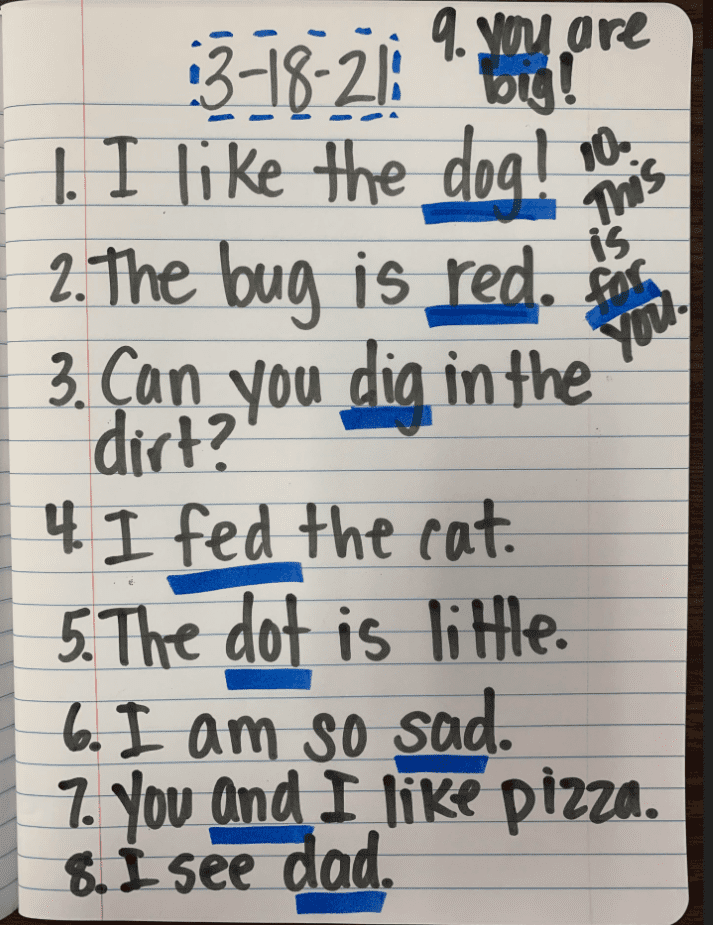 3-18-21
1. I like the dog!
2. The bug is red.
3. Can you dig in the
dirt?
4. I fed the cat.
5. The dot is little.
6. I am so sad.
7. You and I like pizza.
8. I see dad.
9. you are
big!
10.
This
is
for
you.